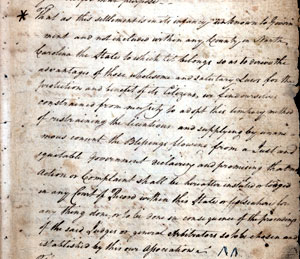 purpose.
* That as this settlement is in its infancy unknown to Govern
ment and not included within any County in North
Carolina the State to which it belongs so as to derive the
advantage of those wholesome and salutary Laws for the
protection and benefit of its Citizens, we find ourselves
constrained from necessity to adopt this temporary method
of restraining the licentious and supplying by unani
mous consent the Blessings flowing from a Just and
equitable government declaring and promising that no
Action or Complaint shall be hereafter instituted or lodged
in any Court of Record within this State or elsewhere for
any thing done or to be done in consequence of the proceedings
of the said Judges or general Arbitrators so to be chosen and
established by this our Association